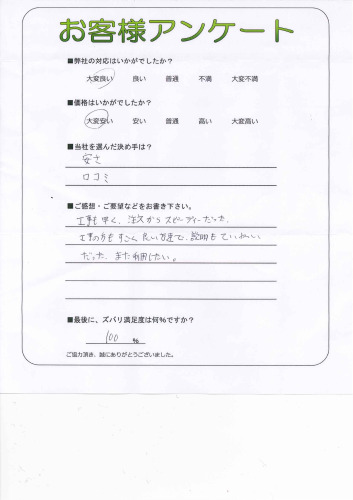 お客様アンケート
■弊社の対応はいかがでしたか？
大変良い 良い 普通 不満 大変不満
■価格はいかがでしたか？
大変安い 安い 普通 高い 大変高い
■当社を選んだ決め手は？
安さ
口コミ
■ご感想・ご要望などをお書き下さい。
工事も早く、注文からスピーディーだった。
工事の方もすごく良い方達で、説明もていねい
だった。また利用したい。
■最後に、ズバリ満足度は何%ですか？
100 %
ご協力頂き、誠にありがとうございました。